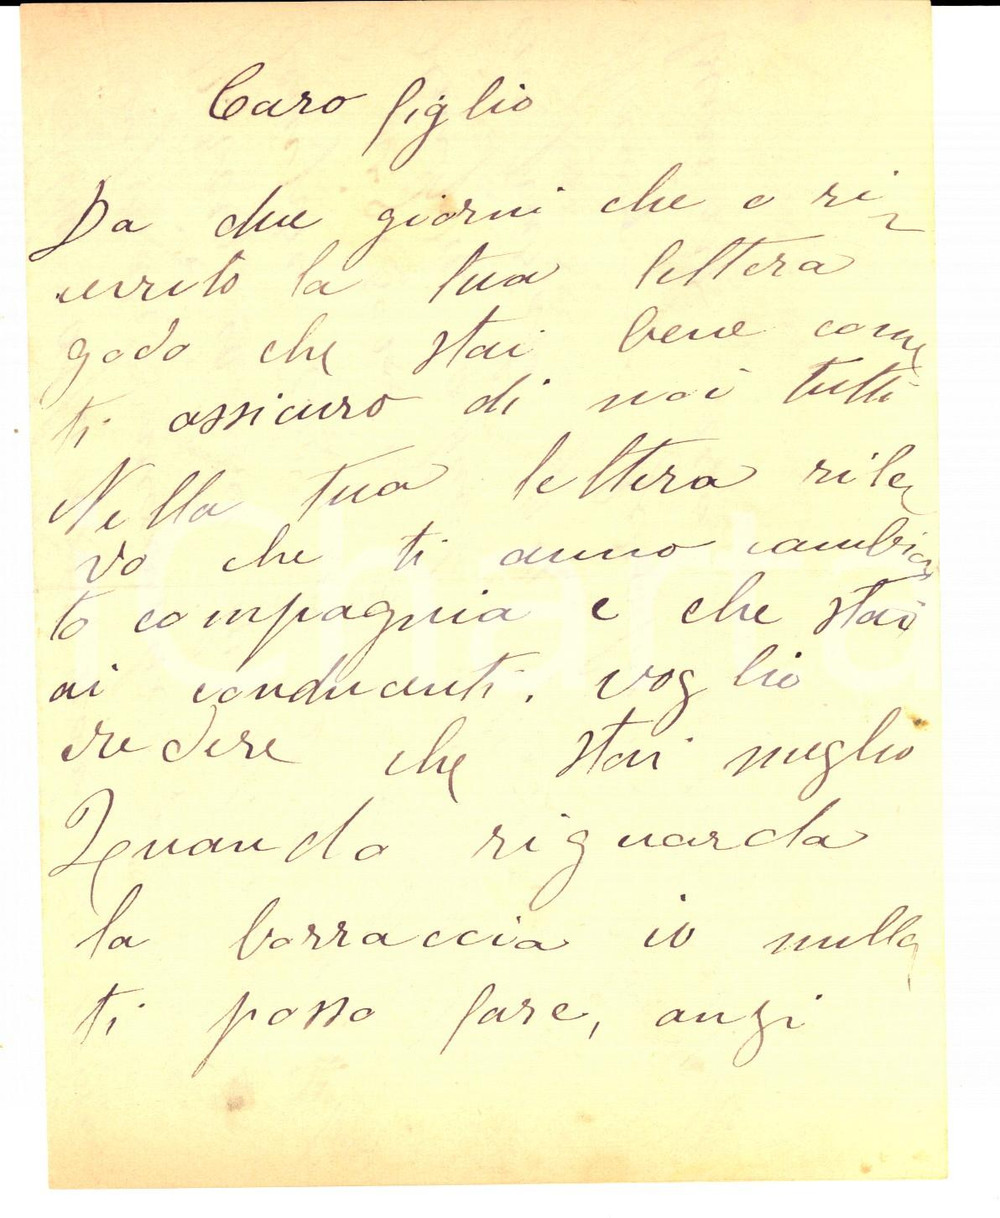 Caro figlio
Da due giorni che o ri-
cevuto la tua lettera
godo che stai bene come
ti assicuro di noi tutti
Nella tua lettera rile
vo che ti anno cambia
to compagnia e che stai
ai conducenti. voglio
credere che stai meglio
Quando riguarda
la borraccia io nulla
ti posso fare, anzi